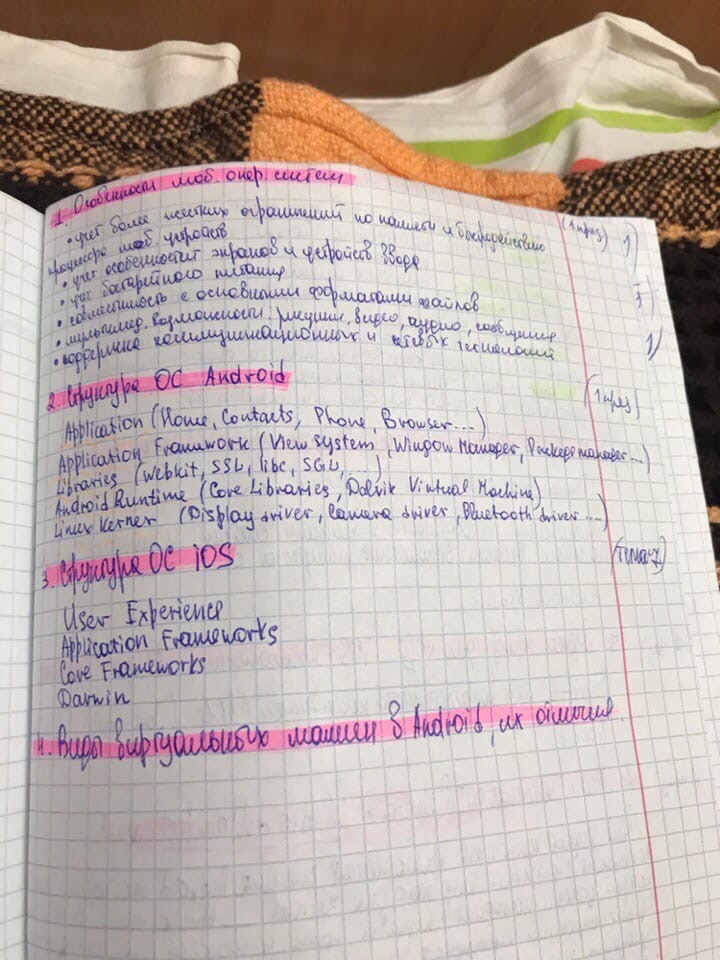 1. Особенности моб. опер. систем
• учет более жестких ограничений по памяти и быстродействию (1 през) 1)
процессора моб. устройств
• учет особенностей экранов и устройств ввода
• учет батарейного питания
• совместимость с основными форматами файлов
• мультимед. возможности: рисунки, видео, аудио, сообщения
• поддержка коммуникационных и сетевых технологий
2. Структура ОС Android (1 през)
Application (Home, Contacts, Phone, Browser...)
Application Framework (View System, Window Manager, Package manager...)
Libraries (Webkit, SSL, libc, SGL, ...)
Android Runtime (Core Libraries, Dalvik Virtual Machine)
Linux Kerner (Display driver, Camera driver, Bluetooth driver ....)
3. Структура ОС iOS (Тема 7)
User Experience
Application Frameworks
Core Frameworks
Darwin
4. Виды виртуальных машин в Android, их отличия.